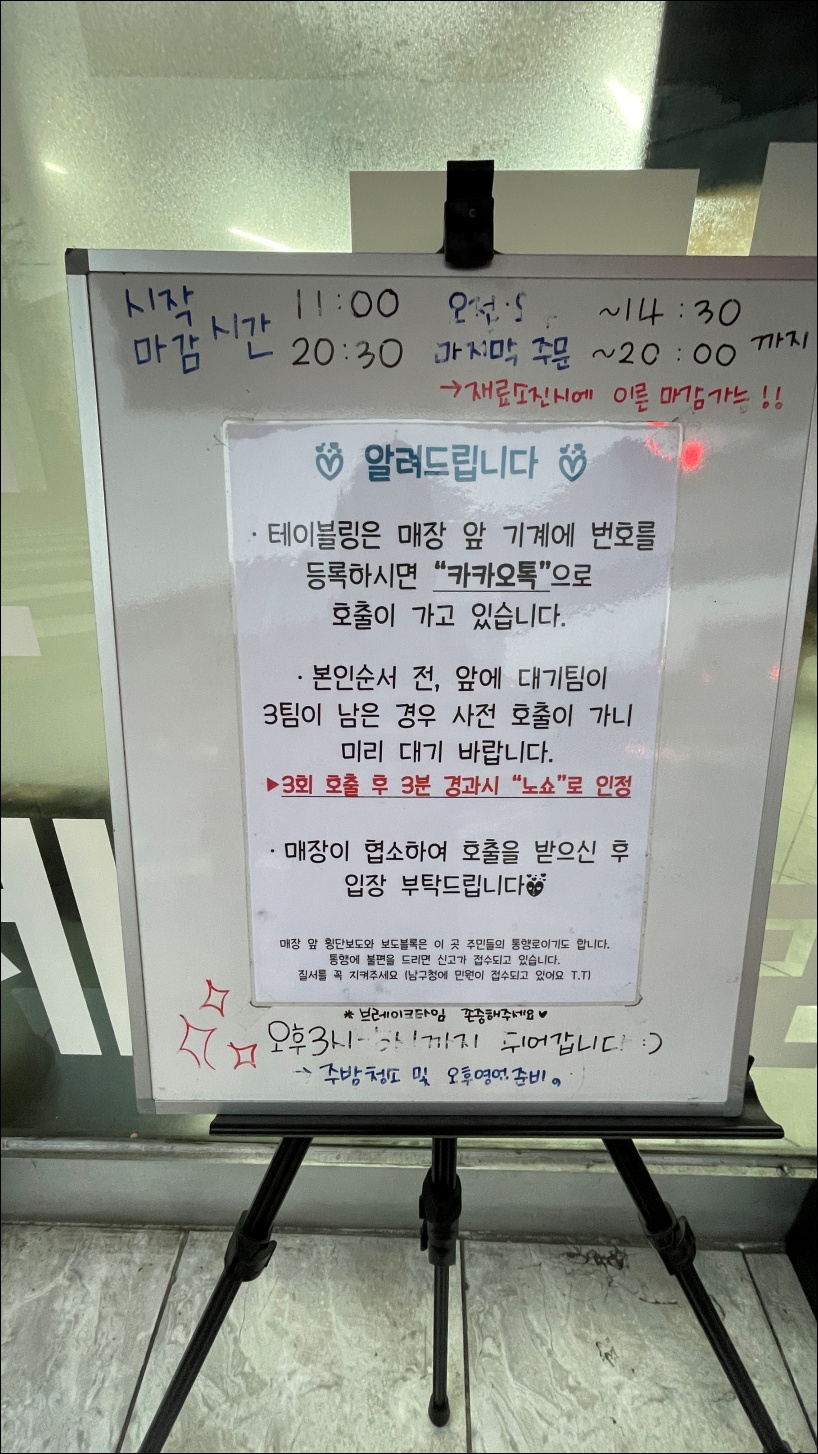 시작 11:00 ~14:30
마감 시간 20:30 마지막 주문 ~20:00 까지
→재료소진시에 이른 마감가능!!
알려드립니다
· 테이블링은 매장 앞 기계에 번호를
등록하시면 “카카오톡”으로
호출이 가고 있습니다.
· 본인순서 전, 앞에 대기팀이
3팀이 남은 경우 사전 호출이 가니
미리 대기 바랍니다.
▶3회 호출 후 3분 경과시 “노쇼”로 인정
· 매장이 협소하여 호출을 받으신 후
입장 부탁드립니다
매장 앞 횡단보도와 보도블록은 이 곳 주민들의 통행로이기도 합니다.
통행에 불편을 드리면 신고가 접수되고 있습니다.
질서를 꼭 지켜주세요 (남구청에 민원이 접수되고 있어요 T.T)
* 브레이크타임 존중해주세요♥
오후3시- 쉬어갑니다 :)
→ 주방청소 및 오후영업준비。